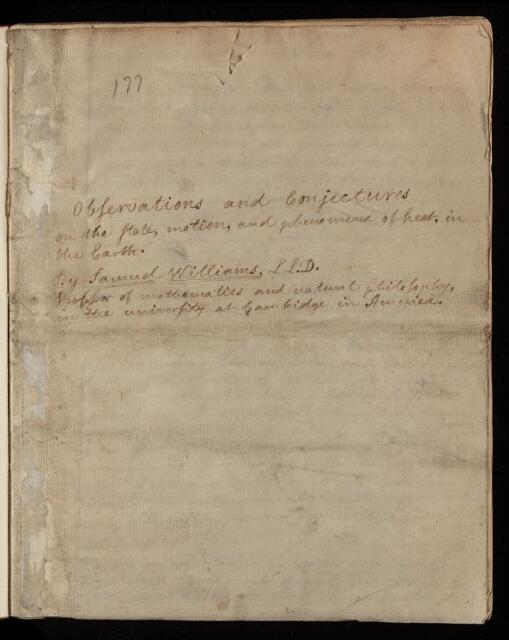 177
Observations and Conjectures
on the state, motion, and phenomena of heat, in
the Earth.
By Samuel Williams, LL.D.
Professor of mathematics and natural philosophy,
in the university at Cambridge in America.